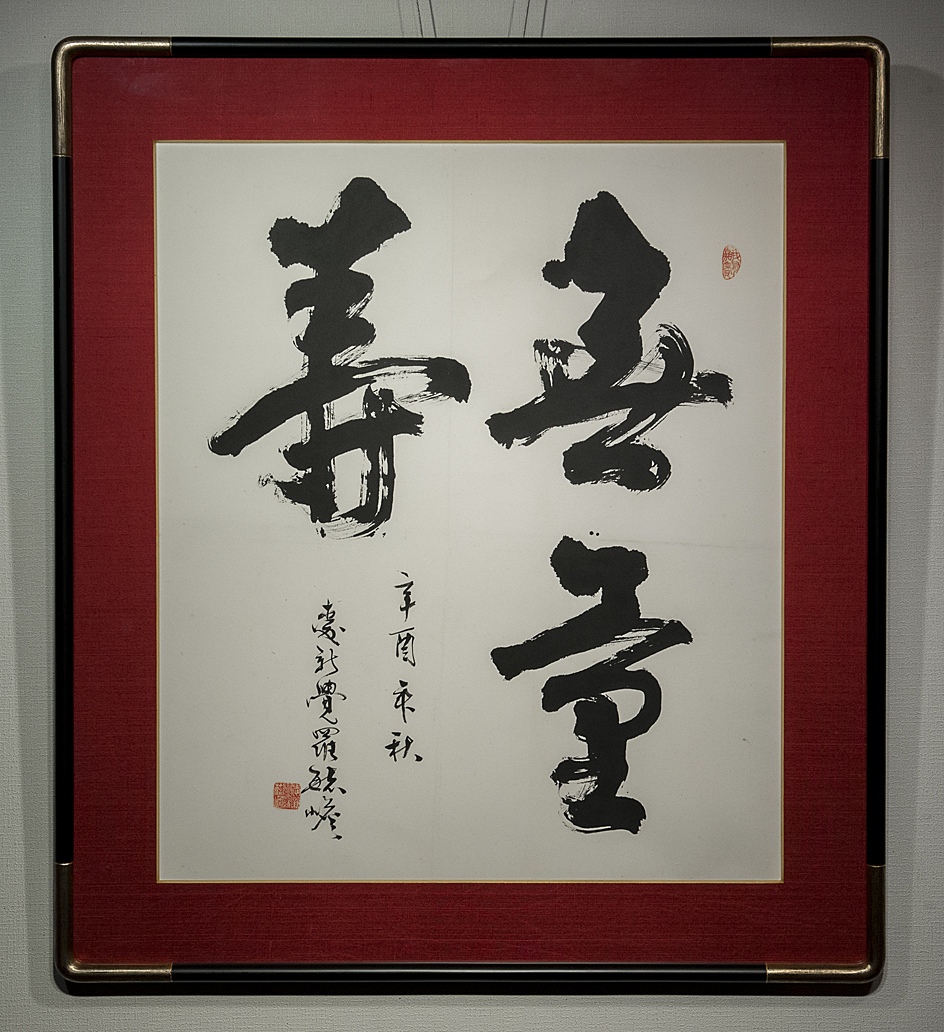 無量
壽
辛酉年秋
愛新覺羅毓嶦